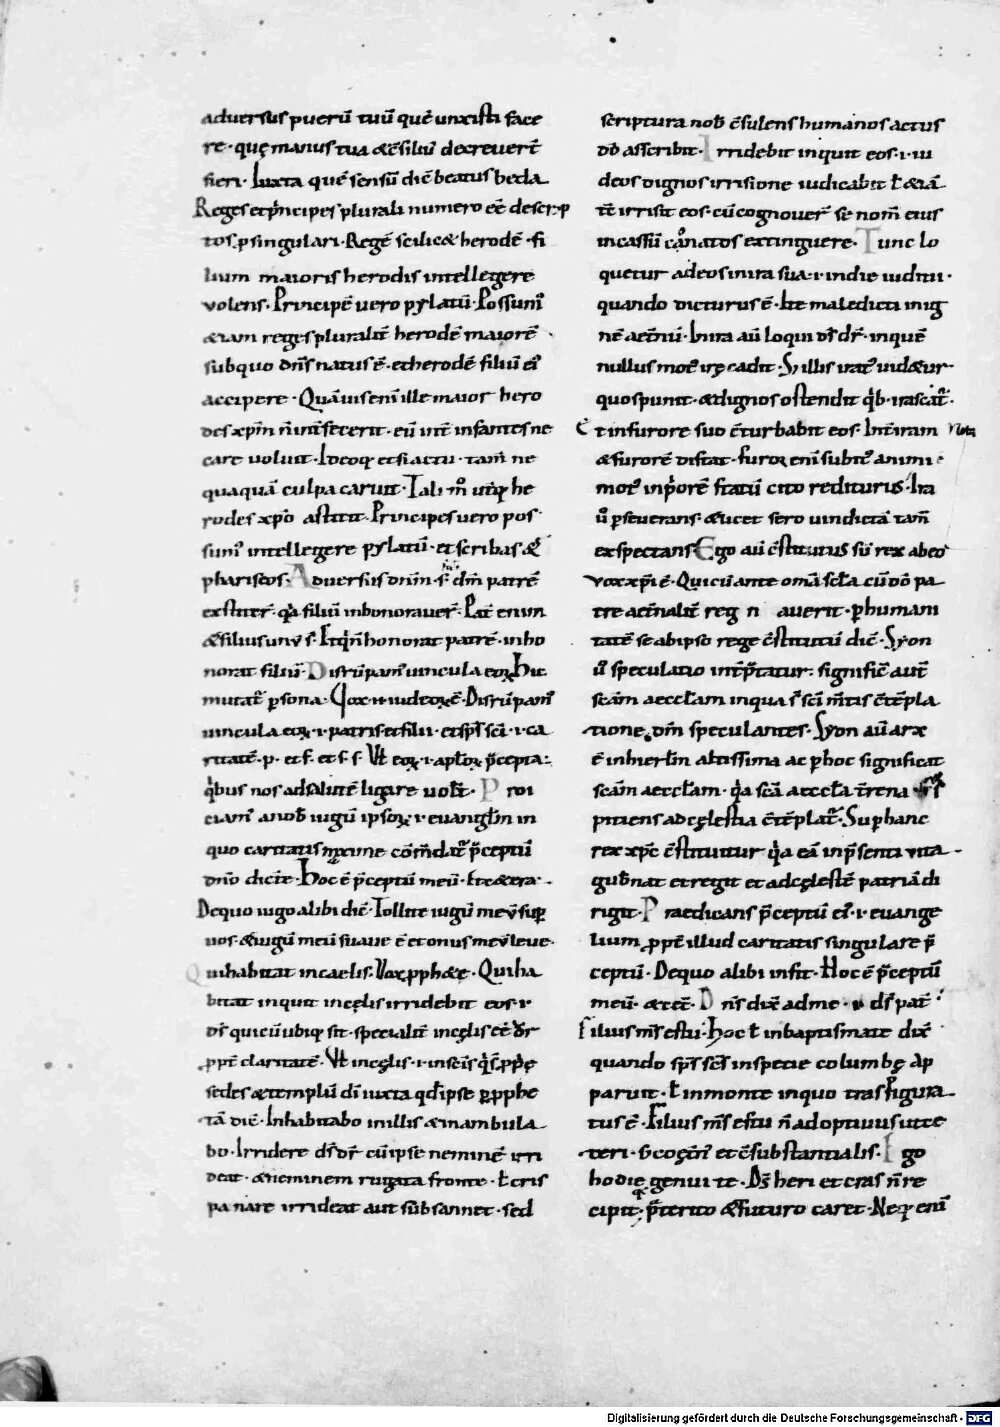 aduersus puerū tuū quē unxisti face
re · quę manus tua & c̄siliū decreuer̄t
fieri · Iuxta quē sensū dic̄ beatus beda
Reges et p̍ncipes plurali numero eē descrip
tos p singulari · Regē scilic& herodē · fi
lium maioris herodis intellegere
volens · Principē uero pylatū · Possum᾽
&iam reges pluralit̄ herodē maiorē
sub quo dn̄s natus ē · et herodē filiū ei᾽
accipere · Quāuis eni ille maior hero
des xp̄m n̄ int̄fecerit · eū int̄ infantes ne
care uoluit · Ideoq; etsi actu · tam̄ ne
quaquā culpa caruit · Tali m̊ utiq; he
rodes xp̄o astitit · Principes uero pos
sum᾽ intellegere pylatū · et scribas &
phariseos · Aduersus dnm̄ · s· dm̄ patrē
exstiter̄ · q̍a filiū inhonorauer̄ · Pat̄ enim
& filius unū s̄ · Et q̍ n̄ honorat patrē · inho
norat filiū · Disrūpam᾽ uincula eoꝝ Hic
mutat᾽ psona · Disrūpam᾽
uincula eoꝝ · i · patris et filii · et sp̄s sc̄i · i · ca
ritatē · p · et f · et s · s · Vt eoꝝ · i · aplōꝝ p̄cepta ·
q̍bus nos ad salutē ligare uolt̄ · Proi
ciam᾽ a nob̄ iugū ipsoꝝ · i · euangliū in
quo caritatis maxime cōm̄dat᾽ p̄ceptū
dn̄o dicēte · Hoc ē p̄ceptū meū · &c&era ·
De quo iugo alibi dic̄ · Tollite iugū meū sup
uos · & iugū meū suaue ē et onus meū leue ·
Qui habitat in caelis · Vox pph&e · Qui ha
bitat inquit in cęlis irridebit eos · i ·
ds̄ qui cū ubiq; sit · specialit̄ in cęlis eē dr̄
ppt̄ claritatē · Vt in cęlis · i · in sc̄is q̍ s̄ pp̍ę
sedes & templū di iuxta qd̄ ipse p pphe
tā dic̄ · Inhabitabo in illis & inambula
bo · Irridere ds̄ dr̄ cū ipse neminē irri
deat · & neminem rugata fronte · ł cris
pa nare irrideat aut subsannet · sed
scriptura nob̄ c̄sulens humanos actus
dō asscribit · Irridebit inquit eos · i · iu
deos dignos irrisione iudicabit ł &iā
t̄c irrisit eos · cū cognouer̄ se nom̄ eius
incassū conatos extinguere · Tunc lo
quetur ad eos in ira sua · i · in die iudicii ·
quando dicturus ē · Ite maledicti in ig
nē aet̄nū · In ira aū loqui ds̄ dr̄ · in quē
nullus mot᾽ irę cadit · S; illis irat᾽ uid&ur ·
quos punit · & dignos ostendit q̍b᾽ irascat᾽ ·
Et in furore suo c̄turbabit eos · Int̄ iram Nota
& furorē distat · furor enī subit᾽ animi
mot᾽ in p̍orē statū cito rediturus · Ira
ū pseuerans · & licet sero uindictā tam̄
exspectans · Ego aū c̄stitutus sū rex ab eo
Vox xp̄i ē · Qui cū ante om̄a scła cū dō pa
tre aet̄nalit̄ reg n auerit · p humani
tatē se ab ipso rege c̄stitutū dic̄ · Syon
ū speculatio int̄p̄tatur · significat aut̄
scām aecctam in qua s̄ sc̄i m̄tis c̄t̄pla
tione dm̄ speculantes · Syon aū arx
ē in hierłm altissima ac p hoc significat
scām aecctam · q̍a sc̄a aeccła t̄rena
pitiens ad cęlestia c̄t̄plat᾽ · Sup hanc
rex xp̄c c̄stituitur q̍a eā in p̄senti uita
gub̄nat et regit et ad cęlestē patriā di
rigit · Praedicans p̄ceptū ei᾽ · i · euange
lium · ppt̄ illud caritatis singulare p̄
ceptū · De quo alibi infit · Hoc ē p̄ceptū
meū · &cet̄ · Dn̄s dix̄ ad me · ds̄ pat̄
Filius m̄s es tu · Hoc ł in baptismate dix̄
quando sp̄s sc̄s in specie columbę ap
paruit · ł in monte in quo trasfigura
tus ē · Filius m̄s es tu n̄ adoptiuus ut ce
teri · s; coęt̄n᾽ et c̄substantialis · Ego
hodie genui te · Ds̄ heri et cras n̄ re
cipit · p̄terito & futuro caret · Neq; enī
Digitalisierung gefördert durch die Deutsche Forschungsgemeinschaft - DFG